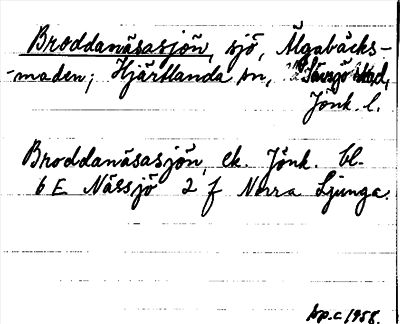 Broddanäsasjön, sjö, Älgabäcks-
-maden; Hjärtlanda sn, Sävsjö stad,
Jönk. l.
Broddanäsasjön, ek. Jönk. bl.
6 E Nässjö 2 f Norra Ljunga.
op.c 1958.